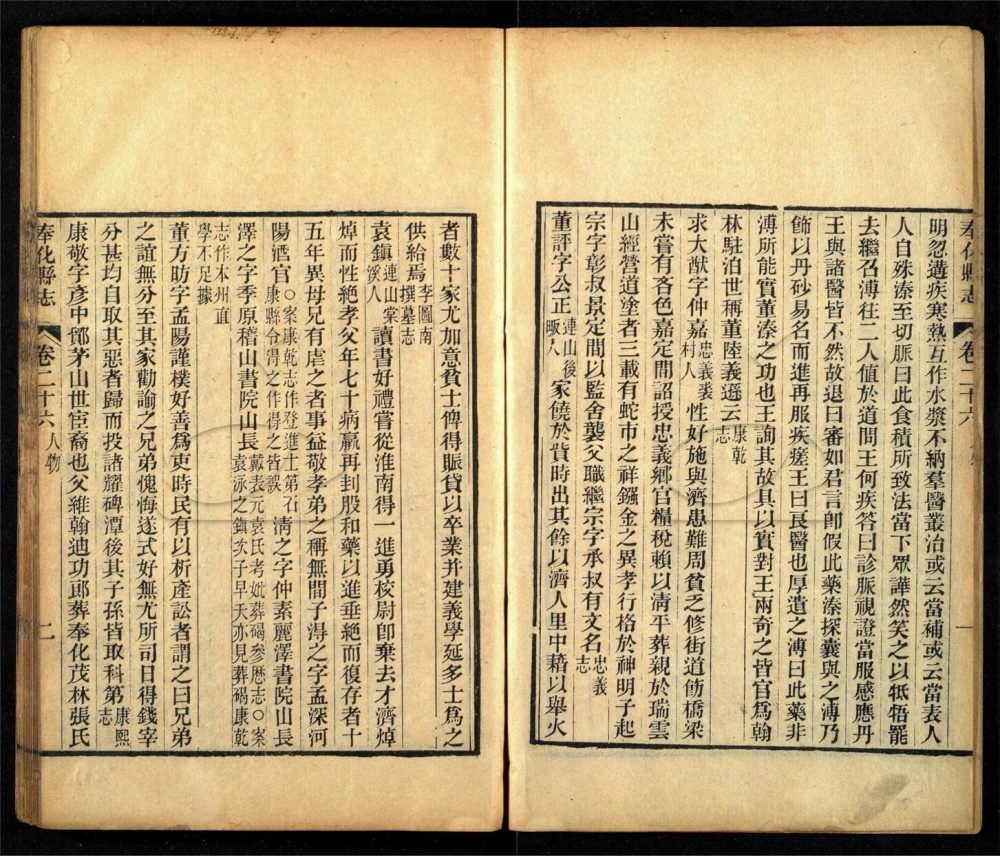 奉化縣志
卷二十六
一
明忽遘疾寒熱互作水漿不納羣醫叢治或云當補或云當表人
人自殊溱至切脈曰此食積所致法當下眾譁然笑之以牴牾罷
去繼召溥往二人値於道問王何疾答曰診脈視證當服感應丹
王與諸醫皆不然故退曰審如君言卽假此藥溱探囊與之溥乃
飾以丹砂易名而進再服疾瘥王曰良醫也厚遣之溥曰此藥非
溥所能實董溱之功也王詢其故具以實對王兩奇之皆官爲翰
林駐泊世稱董陸義遜云康乾志
求大猷字仲嘉忠義裘村人性好施與濟患難周貧乏修街道飭橋梁
未嘗有吝色嘉定間詔授忠義鄉官糧稅賴以淸平葬親於瑞雲
山經營道塗者三載有蛇市之祥鏹金之異孝行格於神明子起
宗字彰叔景定間以監舍襲父職繼宗字承叔有文名忠義志
董評字公正連山後畈人家饒於貲時出其餘以濟人里中藉以舉火
者數十家尤加意貧士俾得賑貸以卒業并建義學延多士爲之
供給焉李圖南撰墓志
袁鎭連山棠溪人讀書好禮嘗從淮南得一進勇校尉卽棄去才濟焯
焯而性絕孝父年七十病羸再刲股和藥以進垂絕而復存者十
五年異母兄有虐之者事益敬孝弟之稱無間子淂之字孟深河
陽酒官○案康乾志作登進士第石康縣令得之作得之皆誤淸之字仲素麗澤書院山長
澤之字季原稽山書院山長戴表元袁氏考妣葬碣參歷志○案袁泳之鎭次子早夭亦見葬碣康乾
志作本州直學不足據
董方昉字孟陽謹樸好善爲吏時民有以析產訟者謂之曰兄弟
之誼無分至其家勸諭之兄弟愧悔遂式好無尤所司日得錢宰
分甚均自取其惡者歸而投諸耀碑潭後其子孫皆取科第康熙志
康敬字彥中鄮茅山世宦裔也父維翰迪功郞葬奉化茂林張氏
奉化縣志
卷二十六
人物
二